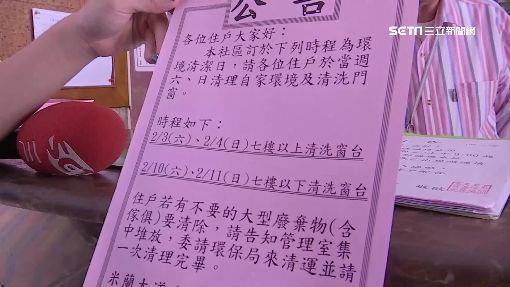 SETN三立新聞網
公告
各位住戶大家好：
本社區訂於下列時程為環
境清潔日，請各位住戶於當週
六、日清理自家環境及清洗門
窗。
時程如下：
2/3(六)、2/4(日)七樓以上清洗窗台
2/10(六)、2/11(日)七樓以下清洗窗台
住戶若有不要的大型廢棄物(含
傢俱)要清除，請告知管理室集
中堆放，委請環保局來清運並請
一次清理完畢。
米蘭大道